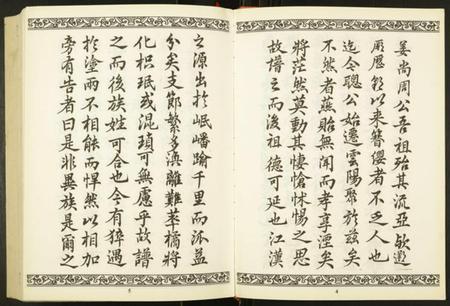 姜尚周公吾祖殆其流亞歟遡
厥歷朝以來簪纓者不乏人也
迄今聰公始遷雲陽聚於茲矣
不然者燕貽無聞而孝享湮矣
將茫然莫動其悽愴怵惕之思
故譜立而後祖德可延也江漢
之源出於岷嶓踰千里而派益
分矣支節繁多滇離難萃橘將
化枳珉或混瑣可無慮乎故譜
之而後族姓可合也今有猝遇
於塗而不相能而悍然以相加
旁有告者曰是非異族是爾之
4
5